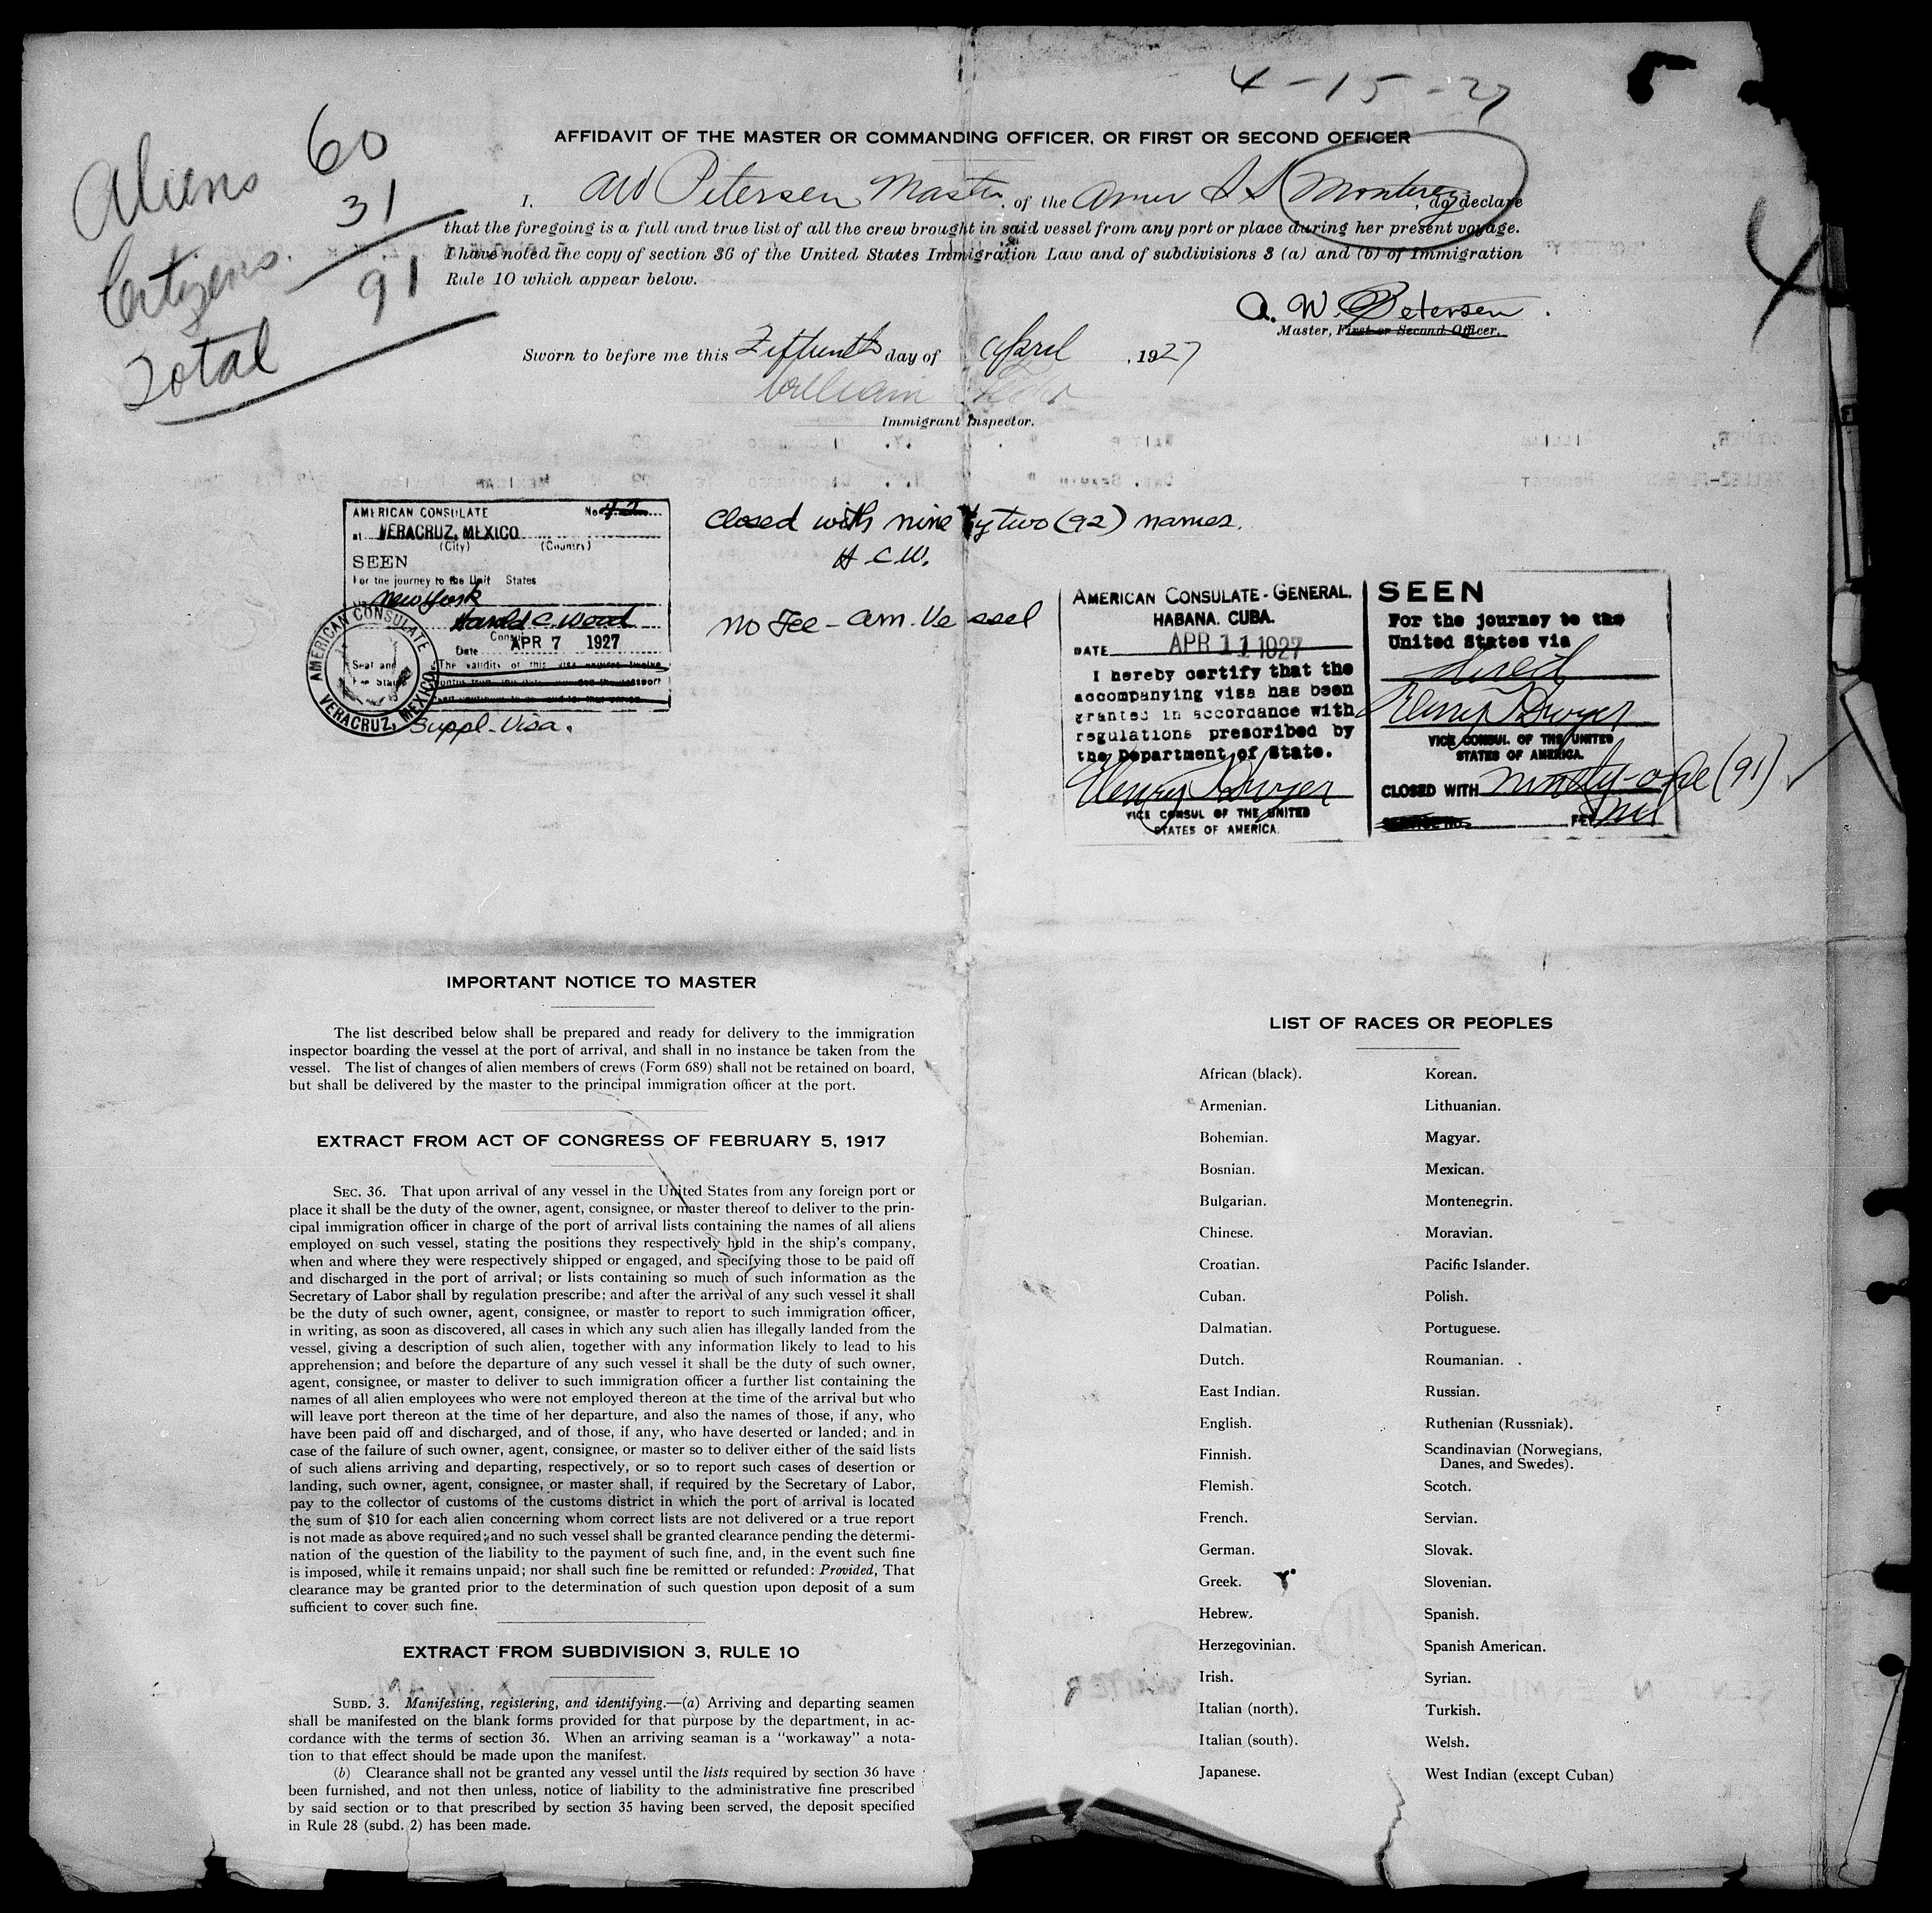 4-15-27
Aliens 60
Citizens 31
Total 91
AFFIDAVIT OF THE MASTER OR COMMANDING OFFICER, OR FIRST OR SECOND OFFICER
I, AW Petersen Master, of the Amer S S Monterey, do declare
that the foregoing is a full and true list of all the crew brought in said vessel from any port or place during her present voyage.
I have noted the copy of section 36 of the United States Immigration Law and of subdivisions 3 (a) and (b) of Immigration
Rule 10 which appear below.
A. W. Petersen.
Master, First or Second Officer.
Sworn to before me this Fifteenth day of April, 1927
William
Immigrant Inspector.
AMERICAN CONSULATE No 42
at VERACRUZ, MEXICO
(City) (Country)
SEEN
For the journey to the Unit States
New York
Harold C. Wood
Consul
Date APR 7 1927
AMERICAN CONSULATE
VERACRUZ, MEXICO
Seal and
Fee Stamp
The validity of this visa expires twelve
Suppl-Visa.
Closed with ninety two (92) names.
H.C.W.
No Fee - Am. Vessel
AMERICAN CONSULATE-GENERAL.
HABANA. CUBA.
DATE APR 11 1927
I hereby certify that the
accompanying visa has been
granted in accordance with
regulations prescribed by
the Department of State.
Henry Dwyer
VICE CONSUL OF THE UNITED
STATES OF AMERICA.
SEEN
For the journey to the
United States via
direct
Henry Dwyer
VICE CONSUL OF THE UNITED
STATES OF AMERICA.
CLOSED WITH ninety-one (91)
FEE Nil
IMPORTANT NOTICE TO MASTER
The list described below shall be prepared and ready for delivery to the immigration
inspector boarding the vessel at the port of arrival, and shall in no instance be taken from the
vessel. The list of changes of alien members of crews (Form 689) shall not be retained on board,
but shall be delivered by the master to the principal immigration officer at the port.
EXTRACT FROM ACT OF CONGRESS OF FEBRUARY 5, 1917
SEC. 36. That upon arrival of any vessel in the United States from any foreign port or
place it shall be the duty of the owner, agent, consignee, or master thereof to deliver to the prin-
cipal immigration officer in charge of the port of arrival lists containing the names of all aliens
employed on such vessel, stating the positions they respectively hold in the ship's company,
when and where they were respectively shipped or engaged, and specifying those to be paid off
and discharged in the port of arrival; or lists containing so much of such information as the
Secretary of Labor shall by regulation prescribe; and after the arrival of any such vessel it shall
be the duty of such owner, agent, consignee, or master to report to such immigration officer,
in writing, as soon as discovered, all cases in which any such alien has illegally landed from the
vessel, giving a description of such alien, together with any information likely to lead to his
apprehension; and before the departure of any such vessel it shall be the duty of such owner,
agent, consignee, or master to deliver to such immigration officer a further list containing the
names of all alien employees who were not employed thereon at the time of the arrival but who
will leave port thereon at the time of her departure, and also the names of those, if any, who
have been paid off and discharged, and of those, if any, who have deserted or landed; and in
case of the failure of such owner, agent, consignee, or master so to deliver either of the said lists
of such aliens arriving and departing, respectively, or so to report such cases of desertion or
landing, such owner, agent, consignee, or master shall, if required by the Secretary of Labor,
pay to the collector of customs of the customs district in which the port of arrival is located
the sum of $10 for each alien concerning whom correct lists are not delivered or a true report
is not made as above required; and no such vessel shall be granted clearance pending the determi-
nation of the question of the liability to the payment of such fine, and, in the event such fine
is imposed, while it remains unpaid; nor shall such fine be remitted or refunded: Provided, That
clearance may be granted prior to the determination of such question upon deposit of a sum
sufficient to cover such fine.
EXTRACT FROM SUBDIVISION 3, RULE 10
SUBD. 3. Manifesting, registering, and identifying.—(a) Arriving and departing seamen
shall be manifested on the blank forms provided for that purpose by the department, in ac-
cordance with the terms of section 36. When an arriving seaman is a "workaway" a nota-
tion to that effect should be made upon the manifest.
(b) Clearance shall not be granted any vessel until the lists required by section 36 have
been furnished, and not then unless, notice of liability to the administrative fine prescribed
by said section or to that prescribed by section 35 having been served, the deposit specified
in Rule 28 (subd. 2) has been made.
LIST OF RACES OR PEOPLES
African (black).
Armenian.
Bohemian.
Bosnian.
Bulgarian.
Chinese.
Croatian.
Cuban.
Dalmatian.
Dutch.
East Indian.
English.
Finnish.
Flemish.
French.
German.
Greek.
Hebrew.
Herzegovinian.
Irish.
Italian (north).
Italian (south).
Japanese.
Korean.
Lithuanian.
Magyar.
Mexican.
Montenegrin.
Moravian.
Pacific Islander.
Polish.
Portuguese.
Roumanian.
Russian.
Ruthenian (Russniak).
Scandinavian (Norwegians,
Danes, and Swedes).
Scotch.
Servian.
Slovak.
Slovenian.
Spanish.
Spanish American.
Syrian.
Turkish.
Welsh.
West Indian (except Cuban)